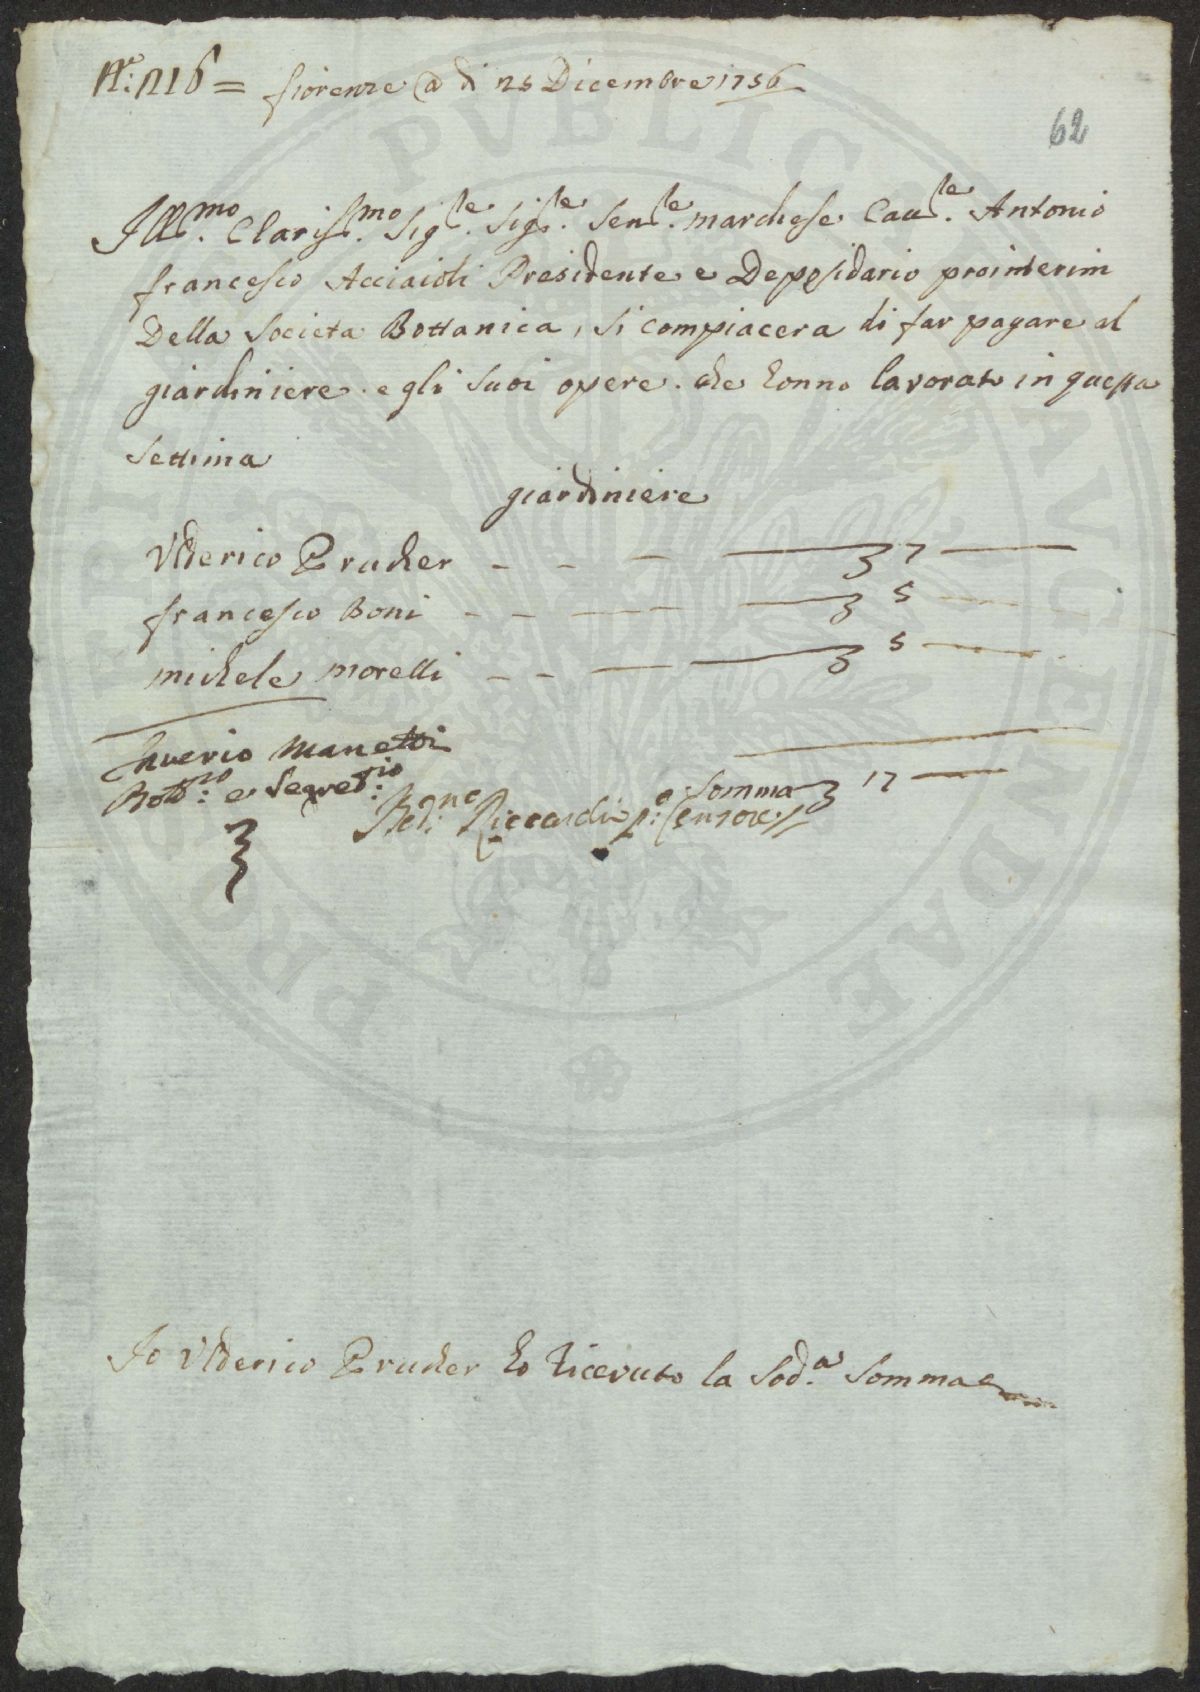 N.o: 216 = fiorenze @ di 25 Dicembre 1756
62
Ill.mo Claris.mo Sig.le Sig.le Sen.le marchese Cau.le Antonio
francesco Acciaioli Presidente e Deposidario prointerim
Della Societa Bottanica, si compiacera di far pagare al
giardiniere. e gli suoi opere. che honno lavorato in questa
settima
giardiniere
Ulderico Prucher - - — — 3 7 —
francesco Boni - - — — 3 5 —
michele morelli - - — — 3 5 —
Saverio Manetti
Bott.co: e Segret.rio
Somma 3 17 —
Riccardi p.o: Censore
Io Ulderico Prucher ho Ricevuto la Sod.a Somma
PVBLICAE
AVGENDAE